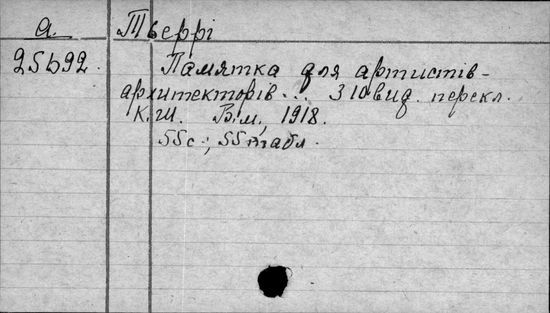 А. Тверрі
25692. Памятка для артистів-
архитекторів... З 10 вид. перекл.
К. Ш. В.м., 1918.
55 с., 55 табл.